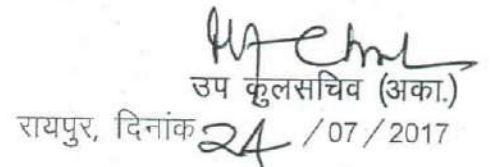 उप कुलसचिव (अका.)
रायपुर, दिनांक 24 / 07 / 2017